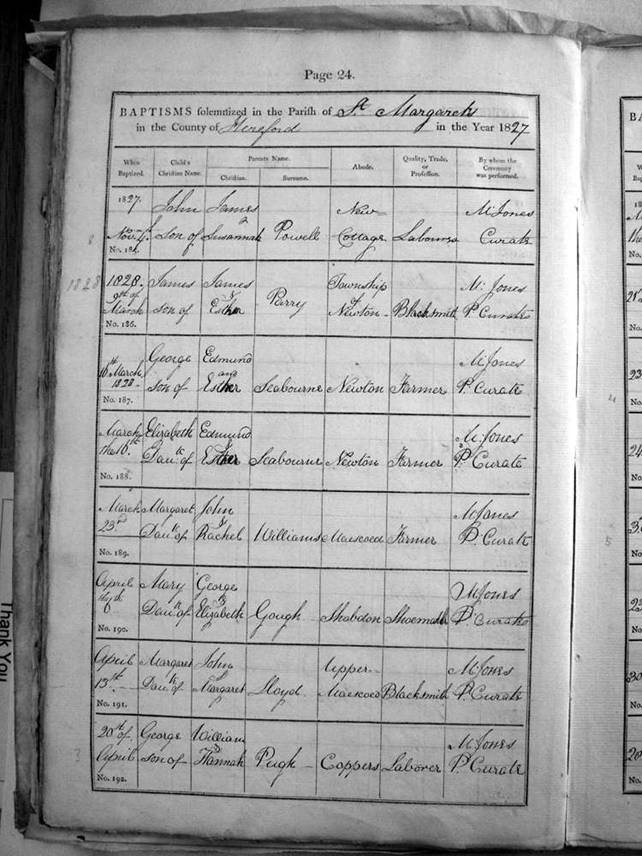 Page 24.
BAPTISMS solemnized in the Parish of St Margarets
in the County of Hereford in the Year 1827
When Baptized. Child's Christian Name. Parents Name. Christian. Surname. Abode. Quality, Trade, or Profession. By whom the Ceremony was performed.
1827. John James New M. Jones
Novr 4. son of & Susannah Powell Cottage Labourer Curate
No. 185.
1828
1828. James James Township M. Jones
9th of March son of & Esther Perry of Newton Blacksmith P. Curate
No. 186.
16th March 1828 George Edmund M. Jones
son of and Esther Seabourne Newton Farmer P. Curate
No. 187.
March Elizabeth Edmund M. Jones
the 16th Daur of Esther Seabourne Newton Farmer P. Curate
No. 188.
March Margaret John M. Jones
23rd Daur of & Rachel Williams Maescoed Farmer P. Curate
No. 189.
April Mary George M. Jones
6th Daur of & Elizabeth Gough Shobdon Shoemaker P. Curate
No. 190.
April Margaret John Upper M. Jones
13th Daur of & Margaret Lloyd Maescoed Blacksmith P. Curate
No. 191.
20th of George William M. Jones
April son of & Hannah Pugh Coppers Laborer P. Curate
No. 192.
Thank You